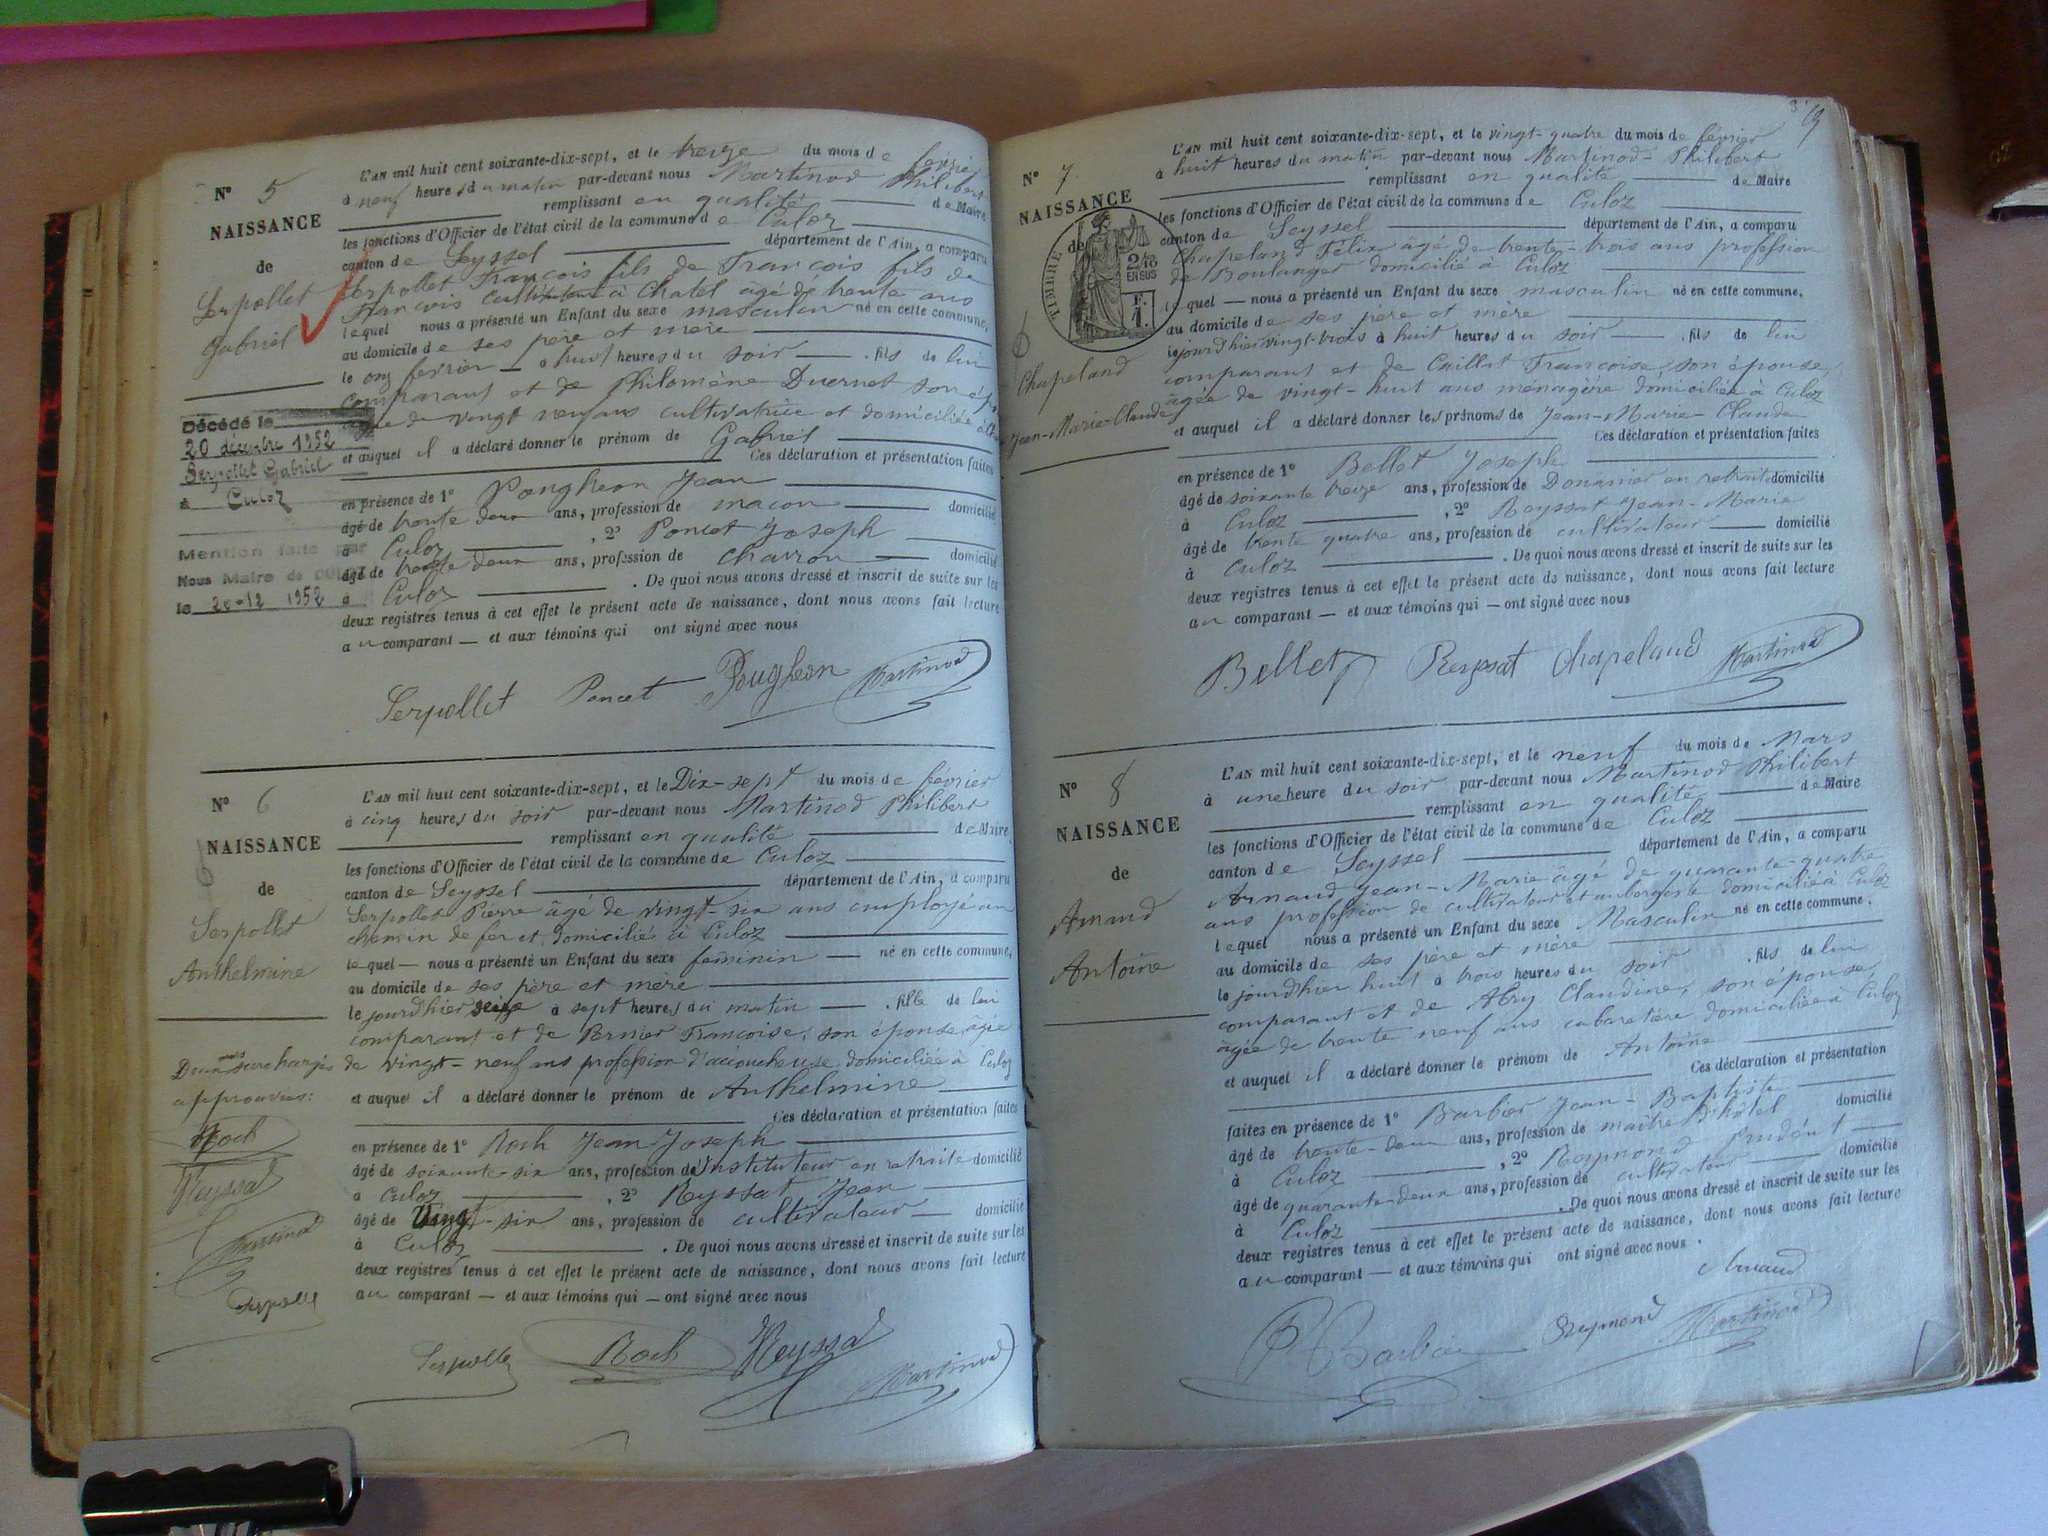 N° 5
NAISSANCE
de
Serpollet
Gabriel
Décédé le
20 décembre 1952
Serpollet Gabriel
à Culoz
Mention faite par
Nous Maire de CULOZ
le 20-12 1952
L'AN mil huit cent soixante-dix-sept, et le treize du mois de février
à neuf heures du matin par-devant nous Martinod Philibert
remplissant en qualité de Maire
les fonctions d'Officier de l'état civil de la commune de Culoz
canton de Seyssel département de l'Ain, a comparu
Serpollet François fils de François fils de
François cultivateur à Chatel âgé de trente ans
lequel nous a présenté un Enfant du sexe masculin né en cette commune,
au domicile de ses père et mère
le onz février à huit heures du soir . fils de lui
comparant et de Philomène Duernet son
de vingt neuf ans cultivatrice et domiciliée à
et auquel il a déclaré donner le prénom de Gabriel
Ces déclaration et présentation faites
en présence de 1° Pougheon Jean
âgé de trente deux ans, profession de maçon domicilié
à Culoz , 2° Poncet Joseph
âgé de trente deux ans, profession de charron domicilié
à Culoz . De quoi nous avons dressé et inscrit de suite sur les
deux registres tenus à cet effet le présent acte de naissance, dont nous avons fait lecture
au comparant — et aux témoins qui ont signé avec nous
Serpollet Poncet Pougheon Martinod
N° 6
NAISSANCE
de
Serpollet
Anthelmine
Deux mots surchargés
approuvés:
Roch
Reyssat
Martinod
Serpollet
L'AN mil huit cent soixante-dix-sept, et le Dix-sept du mois de février
à cinq heures du soir par-devant nous Martinod Philibert
remplissant en qualité de Maire
les fonctions d'Officier de l'état civil de la commune de Culoz
canton de Seyssel département de l'Ain, a comparu
Serpollet Pierre âgé de vingt-six ans employé au
chemin de fer et domicilié à Culoz
lequel — nous a présenté un Enfant du sexe feminin — né en cette commune,
au domicile de ses père et mère
le jourdhier seize à sept heures du matin — . fille de lui
comparant et de Pernier Françoise, son épouse, âgée
de vingt-neuf ans profession d'accoucheuse domiciliée à Culoz
et auquel il a déclaré donner le prénom de Anthelmine
Ces déclaration et présentation faites
en présence de 1° Roch Jean Joseph
âgé de soixante-six ans, profession d'instituteur en retraite domicilié
à Culoz , 2° Reyssat Jean
âgé de Vingt-six ans, profession de cultivateur domicilié
à Culoz . De quoi nous avons dressé et inscrit de suite sur les
deux registres tenus à cet effet le présent acte de naissance, dont nous avons fait lecture
au comparant — et aux témoins qui — ont signé avec nous
Serpollet Roch Reyssat Martinod
N° 7
NAISSANCE
de
TIMBRE
2/10
EN SUS
F.
1.
6
Chapeland
Jean-Marie-Claude
L'AN mil huit cent soixante-dix-sept, et le vingt-quatre du mois de février
à huit heures du matin par-devant nous Martinod Philibert
remplissant en qualité de Maire
les fonctions d'Officier de l'état civil de la commune de Culoz
canton de Seyssel département de l'Ain, a comparu
Chapeland Félix âgé de trente-trois ans profession
de Boulanger domicilié à Culoz
lequel — nous a présenté un Enfant du sexe masculin né en cette commune,
au domicile de ses père et mère
le jourdhier vingt-trois à huit heures du soir — . fils de lui
comparant et de Caillat Françoise, son épouse,
âgée de vingt-huit ans ménagère domiciliée à Culoz
et auquel il a déclaré donner les prénoms de Jean-Marie-Claude
Ces déclaration et présentation faites
en présence de 1° Bellet Joseph
âgé de soixante treize ans, profession de Douanier en retraite domicilié
à Culoz , 2° Reyssat Jean-Marie
âgé de trente quatre ans, profession de cultivateur domicilié
à Culoz . De quoi nous avons dressé et inscrit de suite sur les
deux registres tenus à cet effet le présent acte de naissance, dont nous avons fait lecture
au comparant — et aux témoins qui — ont signé avec nous
Bellet Reyssat Chapeland Martinod
N° 8
NAISSANCE
de
Arnaud
Antoine
L'AN mil huit cent soixante-dix-sept, et le neuf du mois de Mars
à une heure du soir par-devant nous Martinod Philibert
remplissant en qualité de Maire
les fonctions d'Officier de l'état civil de la commune de Culoz
canton de Seyssel département de l'Ain, a comparu
Arnaud Jean-Marie âgé de quarante-quatre
ans profession de cultivateur et aubergiste domicilié à Culoz
lequel nous a présenté un Enfant du sexe Masculin né en cette commune,
au domicile de ses père et mère
le jourdhier huit à trois heures du soir . fils de lui
comparant et de Abry Claudine, son épouse,
âgée de trente neuf ans cabaretière domiciliée à Culoz
et auquel il a déclaré donner le prénom de Antoine
Ces déclaration et présentation
faites en présence de 1° Barbier Jean-Baptiste
âgé de trente-deux ans, profession de maître d'hôtel domicilié
à Culoz , 2° Reymond Prudent
âgé de quarante-deux ans, profession de cultivateur domicilié
à Culoz . De quoi nous avons dressé et inscrit de suite sur les
deux registres tenus à cet effet le présent acte de naissance, dont nous avons fait lecture
au comparant — et aux témoins qui ont signé avec nous.
Arnaud
Barbier Reymond Martinod